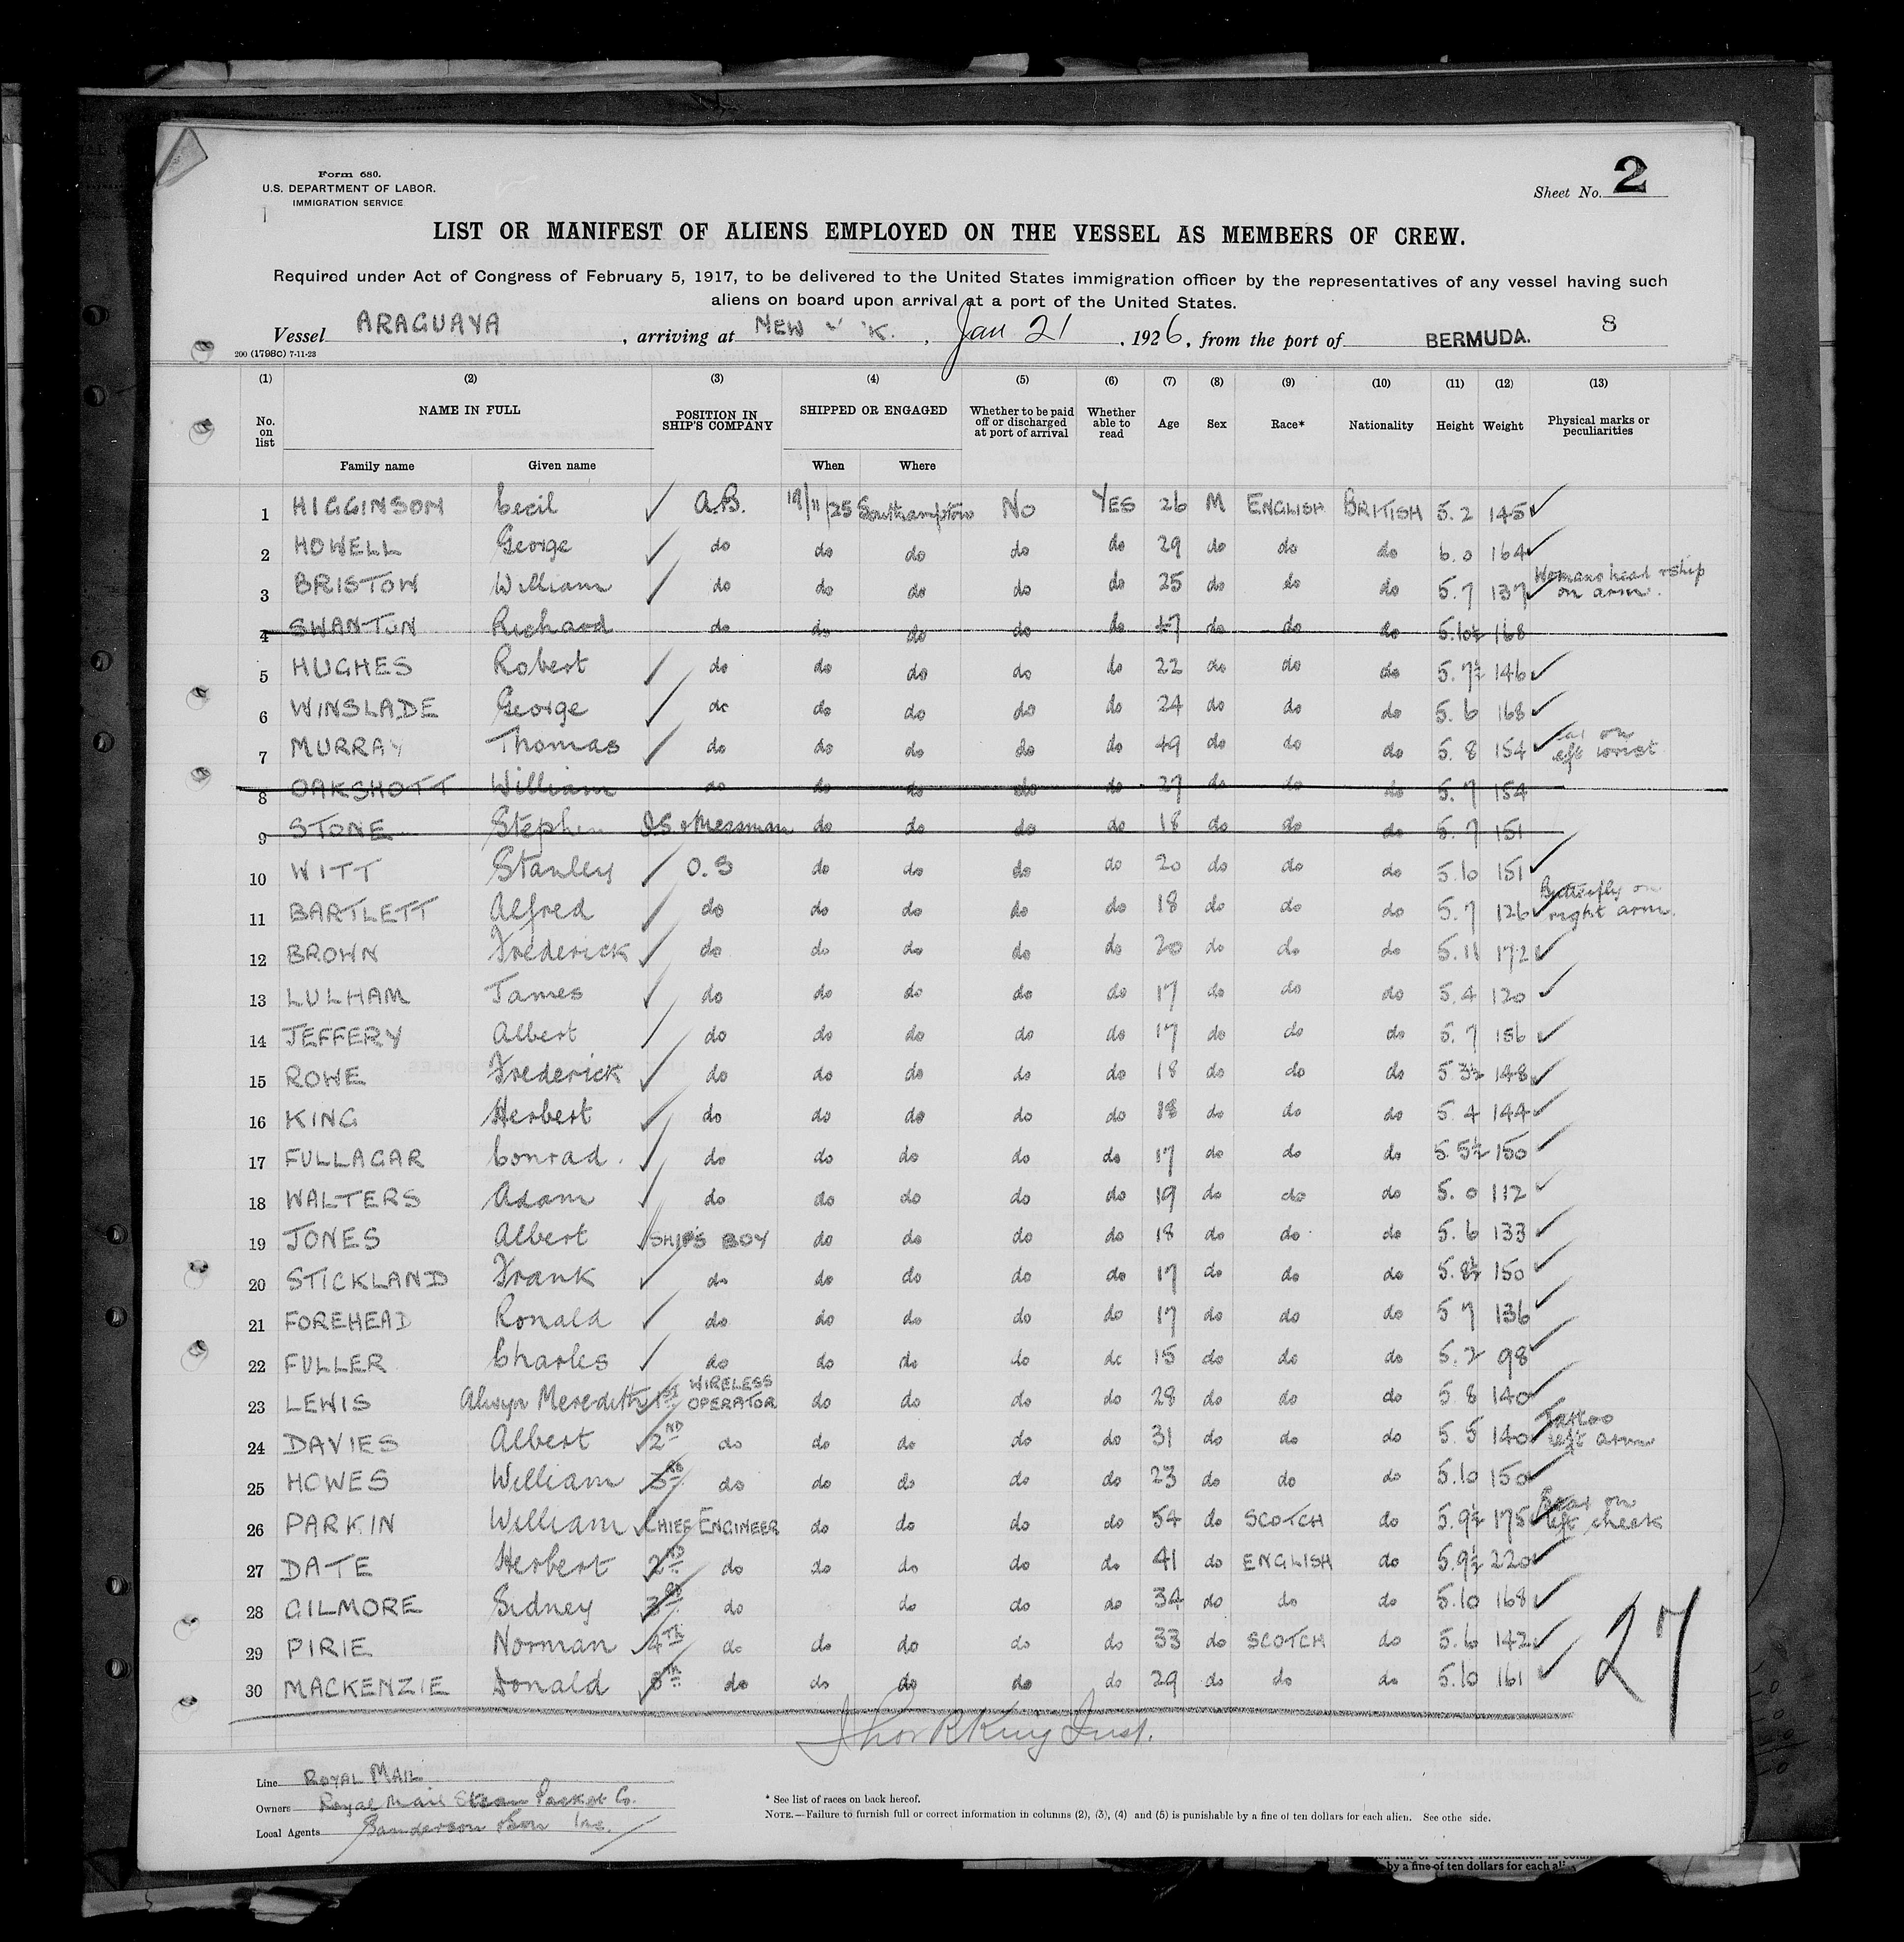 Form 680.
U.S. DEPARTMENT OF LABOR.
IMMIGRATION SERVICE
Sheet No. 2
LIST OR MANIFEST OF ALIENS EMPLOYED ON THE VESSEL AS MEMBERS OF CREW.
Required under Act of Congress of February 5, 1917, to be delivered to the United States immigration officer by the representatives of any vessel having such
aliens on board upon arrival at a port of the United States.
8
Vessel ARAGUAYA, arriving at NEW Y K., Jan 21, 1926, from the port of BERMUDA.
200 (1798C) 7-11-23
(1) (2) (3) (4) (5) (6) (7) (8) (9) (10) (11) (12) (13)
No. on list NAME IN FULL POSITION IN SHIP'S COMPANY SHIPPED OR ENGAGED Whether to be paid off or discharged at port of arrival Whether able to read Age Sex Race* Nationality Height Weight Physical marks or peculiarities
Family name Given name When Where
1 HIGGINSON Cecil A.B. 19/11/25 Southampton No YES 26 M ENGLISH BRITISH 5.2 145
2 HOWELL George do do do do do 29 do do do 6.0 164
3 BRISTOW William do do do do do 25 do do do 5.7 137 Womans head + ship on arm.
4 SWANTON Richard do do do do do 47 do do do 5.10½ 168
5 HUGHES Robert do do do do do 22 do do do 5.7½ 146
6 WINSLADE George do do do do do 24 do do do 5.6 168
7 MURRAY Thomas do do do do do 49 do do do 5.8 154 on left wrist
8 OAKSHOTT William do do do do do 27 do do do 5.7 154
9 STONE Stephen O.S & Messman do do do do 18 do do do 5.7 151
10 WITT Stanley O.S do do do do 20 do do do 5.10 151
11 BARTLETT Alfred do do do do do 18 do do do 5.7 126 Butterfly on right arm.
12 BROWN Frederick do do do do do 20 do do do 5.11 172
13 LULHAM James do do do do do 17 do do do 5.4 120
14 JEFFERY Albert do do do do do 17 do do do 5.7 156
15 ROWE Frederick do do do do do 18 do do do 5 3½ 148
16 KING Herbert do do do do do 18 do do do 5.4 144
17 FULLAGAR Conrad. do do do do do 17 do do do 5.5½ 150
18 WALTERS Adam do do do do do 19 do do do 5.0 112
19 JONES Albert SHIP'S BOY do do do do 18 do do do 5.6 133
20 STICKLAND Frank do do do do do 17 do do do 5.8½ 150
21 FOREHEAD Ronald do do do do do 17 do do do 5 7 136
22 FULLER Charles do do do do do 15 do do do 5.2 98
23 LEWIS Alwyn Meredith 1ST WIRELESS OPERATOR do do do do 28 do do do 5 8 140
24 DAVIES Albert 2ND do do do do do 31 do do do 5 5 140 Tattoo left arm
25 HOWES William 3RD do do do do do 23 do do do 5.10 150
26 PARKIN William CHIEF ENGINEER do do do do 54 do SCOTCH do 5.9½ 175 Scar on left cheek
27 DATE Herbert 2ND do do do do do 41 do ENGLISH do 5.9½ 220
28 GILMORE Sidney 3RD do do do do 34 do do do 5.10 168
29 PIRIE Norman 4TH do do do do do 33 do SCOTCH do 5.6 142
30 MACKENZIE Donald 5TH do do do do do 29 do do do 5.10 161
27
Line ROYAL MAIL
Owners Royal Mail Steam Packet Co.
Local Agents Sanderson & Son Inc.
* See list of races on back hereof.
NOTE.—Failure to furnish full or correct information in columns (2), (3), (4) and (5) is punishable by a fine of ten dollars for each alien. See othe side.
by a fine of ten dollars for each ali